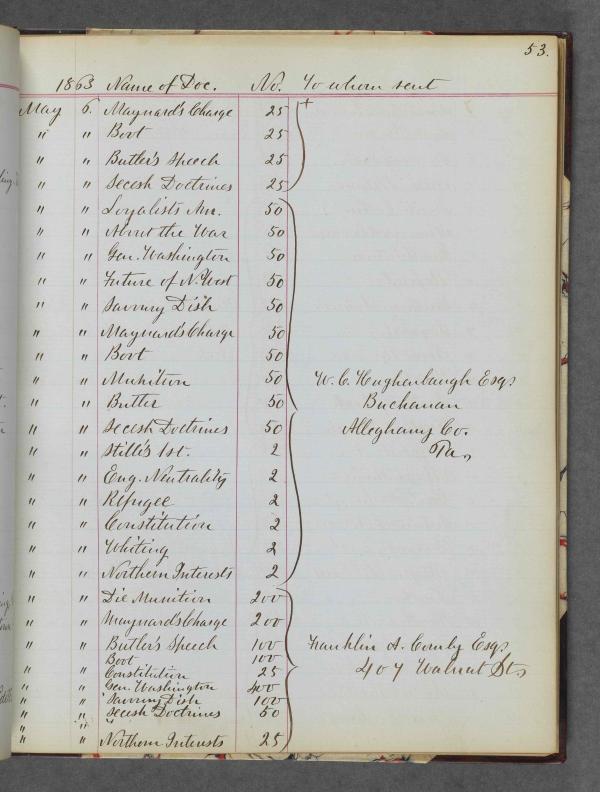 53.
1863 Name of Doc. No. To whom sent
May 6. Maynard's Charge 25 +
" " Boot 25
" " Butler's Speech 25
" " Secesh Doctrines 25
" " Loyalists Am. 50
" " About the War 50
" " Gen. Washington 50
" " Future of N. West 50
" " Savoury Dish 50
" " Maynard's Charge 50
" " Boot 50
" " Munition 50 W. C. Hughenbaugh Esq.
" " Butler 50 Buchanan
" " Secesh Doctrines 50 Alleghany Co.
" " Stillé's 1st. 2 Pa.
" " Eng. Neutrality 2
" " Refugee 2
" " Constitution 2
" " Whiting 2
" " Northern Interests 2
" " Die Munition 200
" " Maynard's Charge 200
" " Butler's Speech 100 Franklin A. Comly Esq.
" " Boot 100
" " Constitution 25 407 Walnut St.
" " Gen. Washington 400
" " Savoury Dish 100
" " Secesh Doctrines 50
" " "
" " Northern Interests 25